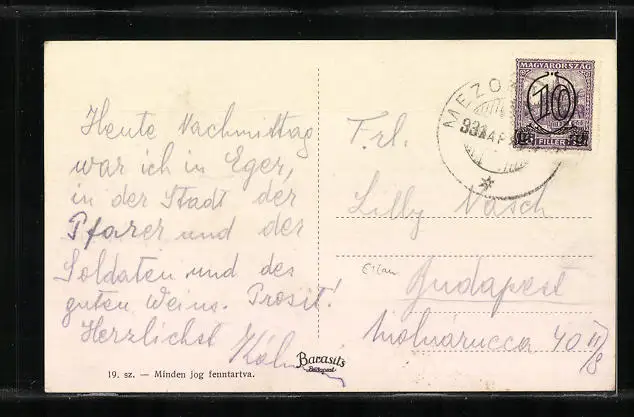 Heute Nachmittag
war ich in Eger,
in der Stadt der
Pfarer und der
Soldaten und des
guten Weins. Prosit!
Herzlichst
Frl.
Lilly Nasch
Budapest
Molnárucca 40 II/8
MEZOK
MAGYARORSZÁG
10
FILLER
Barasits
Budapest
19. sz. — Minden jog fenntartva.